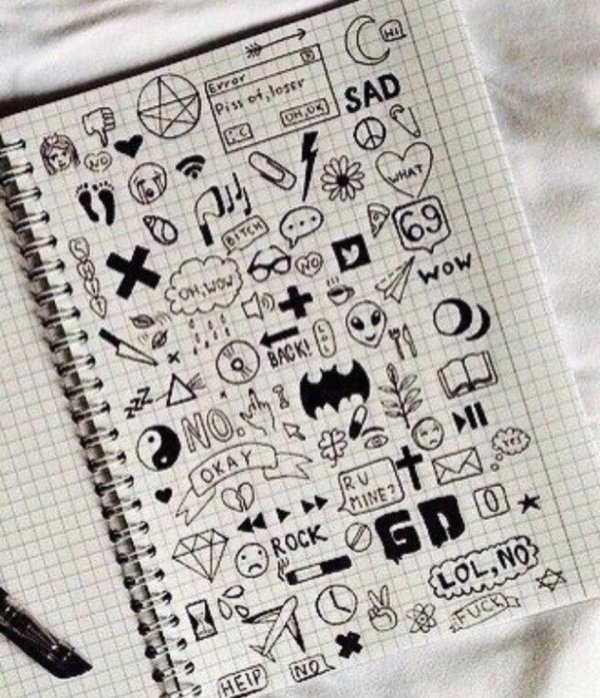 HI
Error
Piss of, loser
UH, OK
SAD
NO
WHAT
BITCH
69
SHIT
NO
WOW
OH, WOW
BACK!
LOL
zzz
NO.
OKAY
Yes
R U
MINE?
ROCK
GD
0
LOL, NO
FUCK
HElP
NO